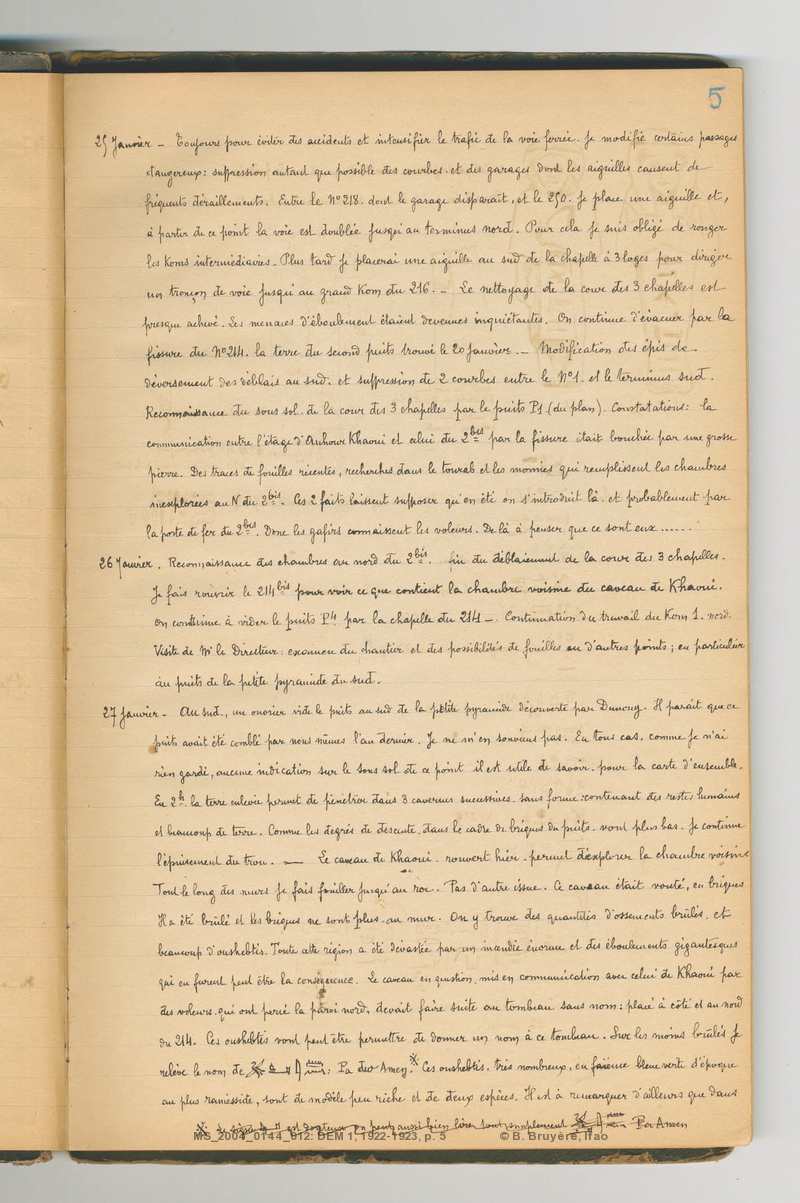 5
25 Janvier - Toujours pour éviter des accidents et intensifier le trafic de la voie ferrée. Je modifie certains passages
dangereux : suppression autant que possible des courbes. et des garages dont les aiguilles causent de
fréquents déraillements. Entre le N° 218. dont le garage disparait, et le 250. Je place une aiguille et,
à partir de ce point la voie est doublée jusqu'au terminus nord. Pour cela je suis obligé de ronger
les Koms intermédiaires. Plus tard je placerai une aiguille au sud de la chapelle à 3 loges pour diriger
un tronçon de voie jusqu'au grand Kom du 216. - Le nettoyage de la cour des 3 chapelles est
presque achevé. Les menaces d'éboulement étaient devenues inquiétantes. On continue d'évacuer par la
fissure du N° 214. la terre du second puits trouvé le 20 Janvier. - Modification des épis de
déversement des déblais au sud. et suppression de 2 courbes entre le N°1. et le terminus sud.
Reconnaissance du sous sol. de la cour des 3 chapelles par le puits P1 (du plan). Constatations : la
communication entre l'étage d'Anhour Khaoui et celui du 2bis par la fissure était bouchée par une grosse
pierre. Des traces de fouilles récentes, recherches dans le tourab et les momies qui remplissent les chambres
inexplorées au N du 2bis. Ces 2 faits laissent supposer qu'en été on s'introduit là. et probablement par
la porte de fer du 2bis. Donc les gafirs connaissent les voleurs. De là à penser que ce sont eux ......
26 Janvier. Reconnaissance des chambres au nord du 2bis. fin du déblaiement de la cour des 3 chapelles.
Je fais rouvrir le 214bis pour voir ce que contient la chambre voisine du caveau de Khaoui.
On continue à vider le puits P4 par la chapelle du 214 -. Continuation du travail du Kom 1. nord.
Visite de Mr le Directeur : examen du chantier et des possibilités de fouilles en d'autres points ; en particulier
au puits de la petite pyramide du sud.
27 Janvier - Au sud., un ouvrier vide le puits au sud de la petite pyramide découverte par Duncuy. Il parait que ce
puits avait été comblé par nous mêmes l'an dernier. Je ne m'en souviens pas. En tous cas, comme je n'ai
rien gardé, aucune indication sur le sous sol de ce point il est utile de savoir. pour la carte d'ensemble.
En 2h la terre enlevée permet de pénétrer dans 3 cavernes successives. sans forme : contenant des restes humains
et beaucoup de terre. Comme les degrés de descente, dans le cadre de briques du puits. vont plus bas. Je continue
l'épuisement du trou. — Le caveau de Khaoui. rouvert hier. permet d'explorer la chambre voisine
Tout le long des murs je fais fouiller jusqu'au roc. Pas d'autre issue. Ce caveau était vouté, en briques
Il a été brûlé et les briques ne sont plus. au mur. On y trouve des quantités d'ossements brûlés. et
beaucoup d'oushebtis. Toute cette région a été dévastée par un incendie énorme et des éboulements gigantesques
qui en furent peut être la conséquence. Le caveau en question, mis en communication avec celui de Khaoui par
des voleurs. qui ont percé la paroi nord, devait faire suite au tombeau sans nom : placé à côté et au nord
du 214. Ces oushebtis vont peut être permettre de donner un nom à ce tombeau. Sur les moins brûlés je
relève le nom de : Pa dew Amen.※ Ces oushebtis, très nombreux, en faïence bleue verte d'époque
au plus ramesside, sont de modèle peu riche et de deux espèces. Il est à remarquer d'ailleurs que dans
※ Le signe est douteux on peut aussi bien lire tout simplement Pa Amen
MS_2004_0144_012: DEM 1, 1922-1923, p. 5 © B. Bruyère, Ifao